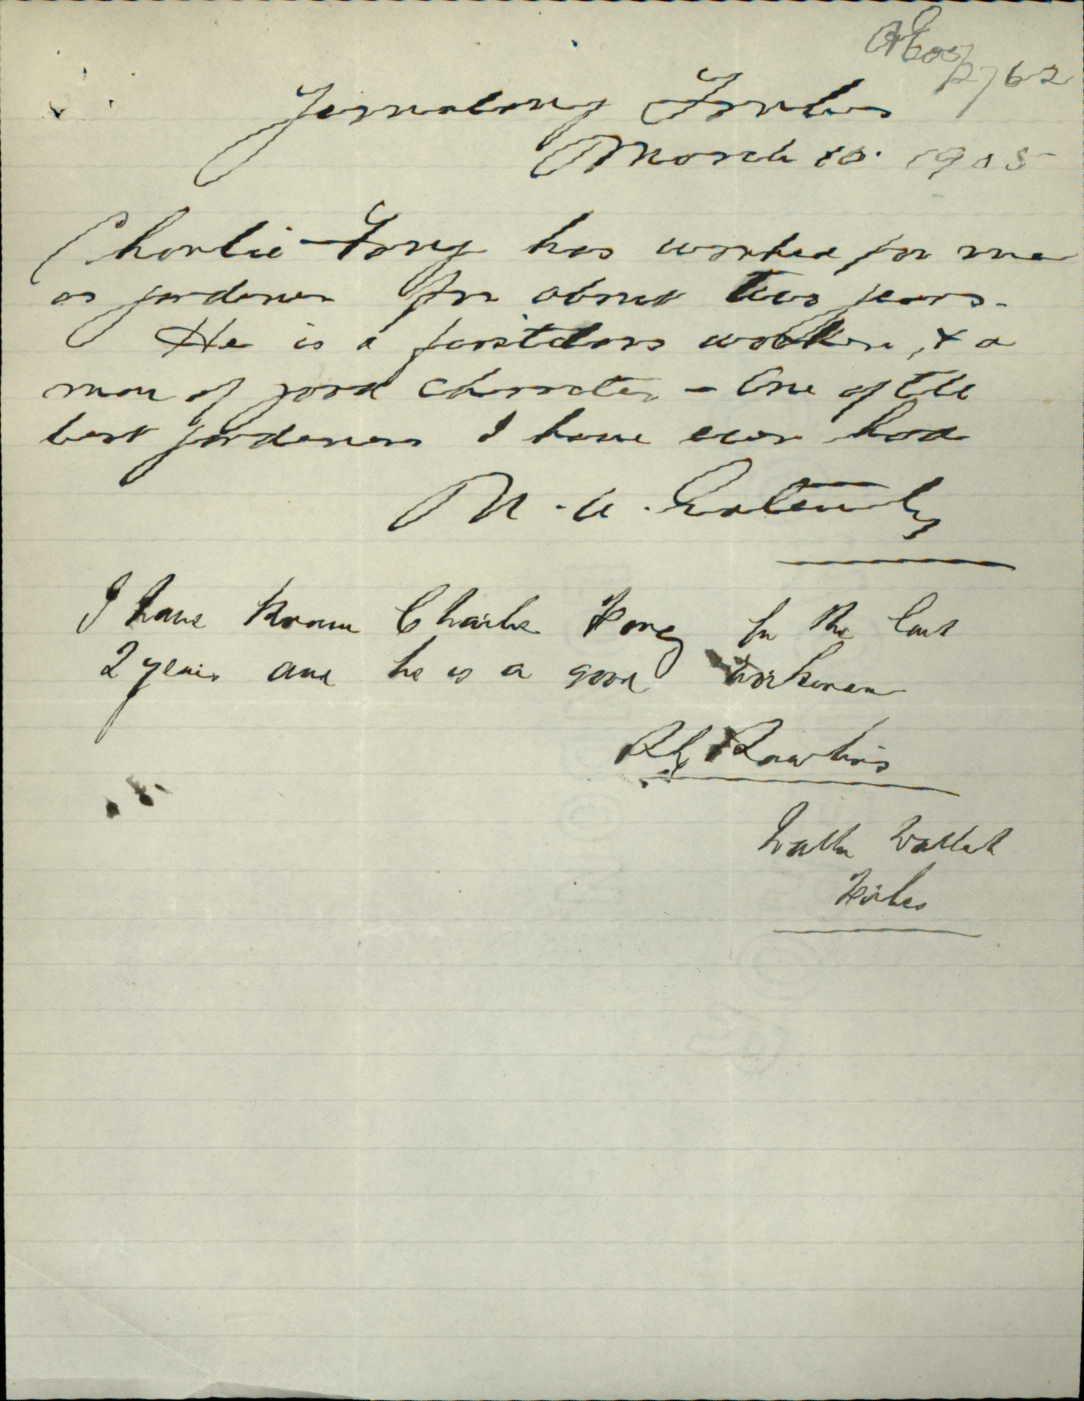 2762
Jemalong Forbes
March 10. 1905
Charlie Fong has worked for me
as gardener for about two years.
He is a firstclass worker, & a
man of good character - One of the
best gardeners I have ever had
N. A. Gatenby
I have known Charlie Fong for the last
2 years and he is a good workman
Rawlins
Walla Wallah
Forbes